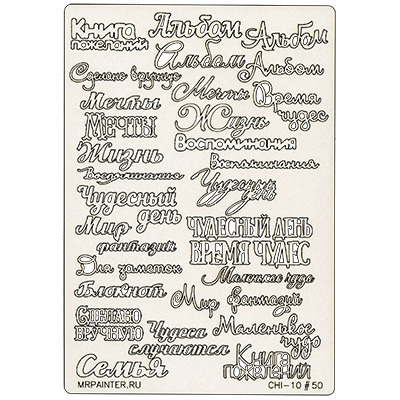 Книга Альбом Альбом
пожеланий
Альбом Альбом
Сделано вручную
Мечты Мечты Время
чудес
Мечты Жизнь
Жизнь Воспоминания
Воспоминания Воспоминания
Чудесный Чудесный
день день
Мир ЧУДЕСНЫЙ ДЕНЬ
фантазий ВРЕМЯ ЧУДЕС
Для заметок Маленькое чудо
Блокнот Мир фантазий
СДЕЛАНО Чудеса Маленькое
ВРУЧНУЮ случаются чудо
Семья Книга
пожеланий
MRPAINTER.RU CHI-10 #50